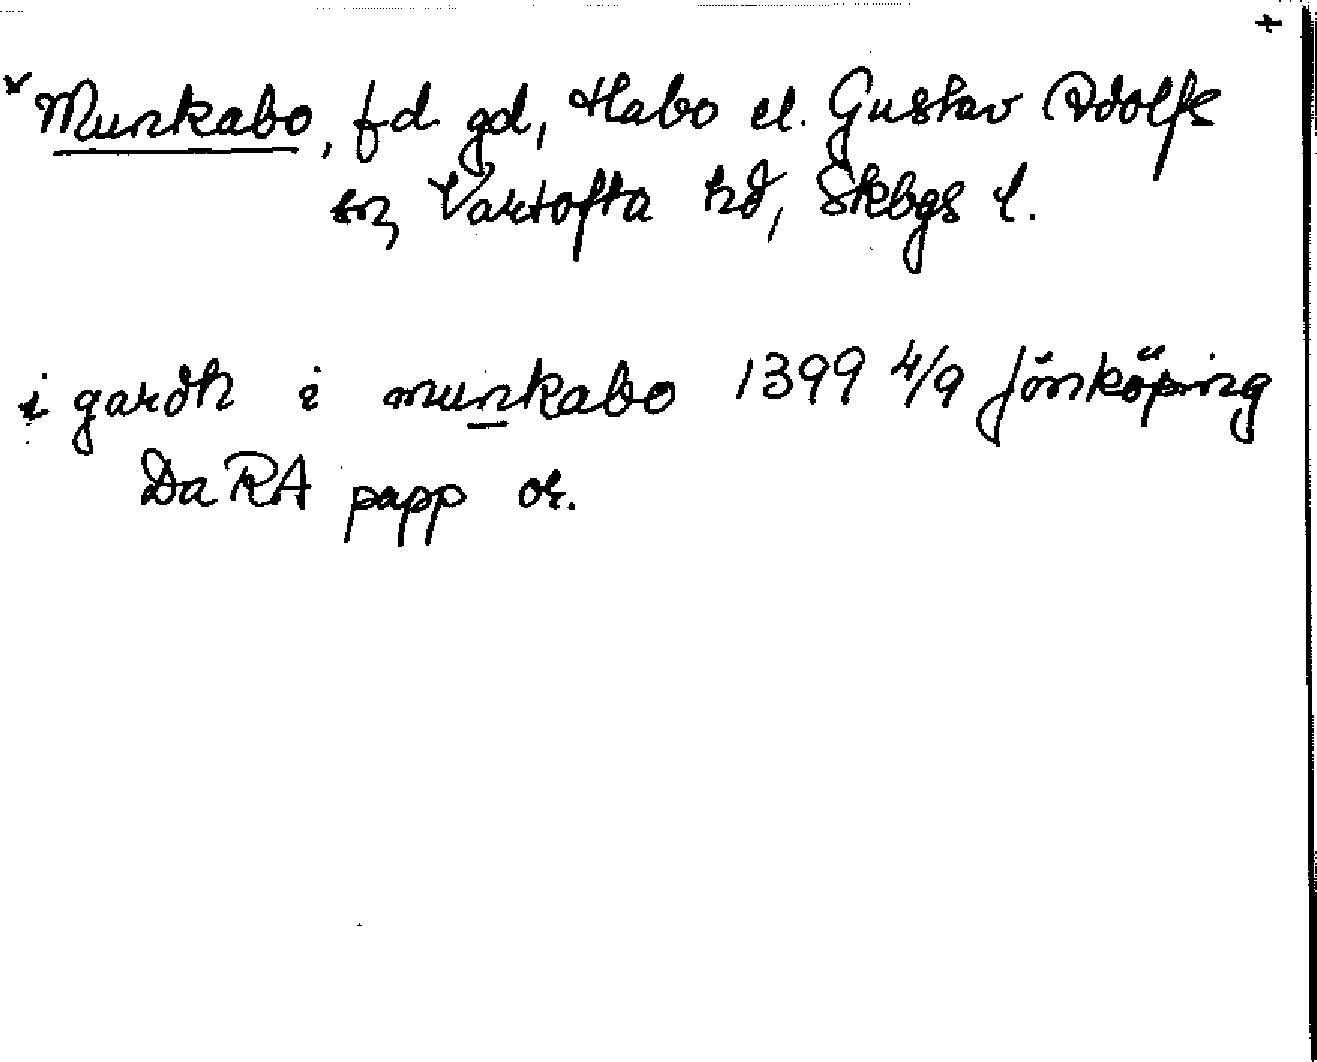 +
Munkabo, fd gd, Habo el. Gustav Adolfs
sn, Vartofta hd, Skbgs l.
i gardh i munkabo 1399 4/9 Jönköping
DaRA papp or.